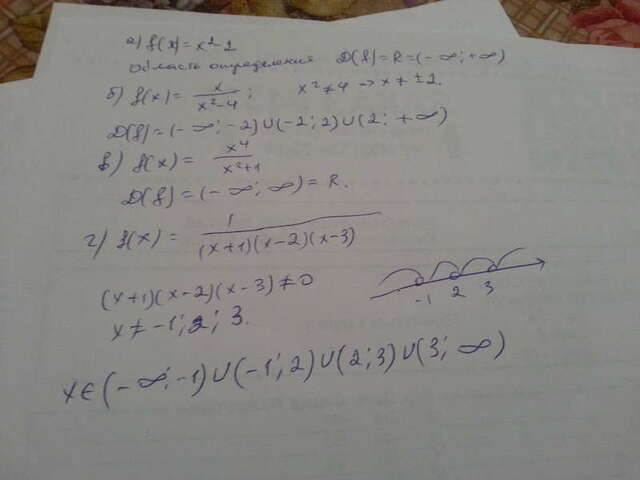 а) f(x) = x² - 2
Область определения D(f) = R = (-∞; +∞)
б) f(x) = x/(x²-4); x² ≠ 4 → x ≠ ±2.
D(f) = (-∞; -2) ∪ (-2; 2) ∪ (2; +∞)
в) f(x) = x⁴/(x²+1)
D(f) = (-∞; ∞) = R.
г) f(x) = 1/((x+1)(x-2)(x-3))
(x+1)(x-2)(x-3) ≠ 0
-1 2 3
x ≠ -1; 2; 3.
x ∈ (-∞; -1) ∪ (-1; 2) ∪ (2; 3) ∪ (3; ∞)